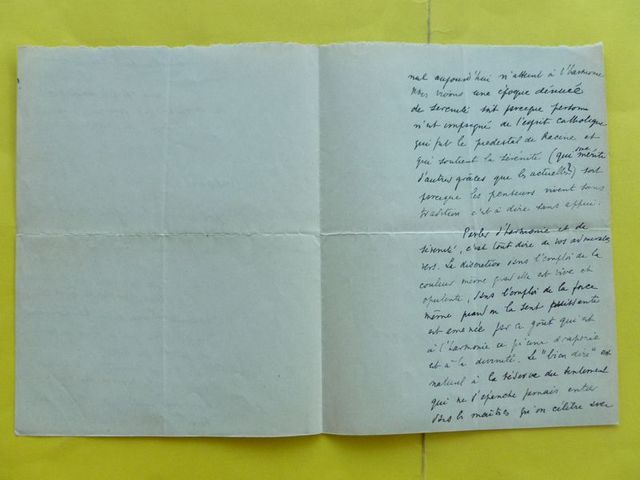 nul aujourd'hui n'atteint à l'harmonie
Nous vivons une époque dénuée
de sérénité soit parceque personne
n'est imprégné de l'esprit catholique
qui fut le piedestal de Racine et
qui soutient la sérénité (qui mérite
d'autres grâces que les actuelles?) soit
parceque les penseurs vivent sans
tradition c'est à dire sans appui.
Parler d'harmonie et de
sérénité, c'est tout dire de vos admirables
vers. La discrétion dans l'emploi de la
couleur même quand elle est vive et
opulente, dans l'emploi de la force
même quand on la sent puissante
est amenée par ce goût qui est
à l'harmonie ce qu'une draperie
est à la divinité. Le "bien dire" est
naturel à la réserve du sentiment
qui ne s'épanche jamais
dans les qu'on célèbre avec